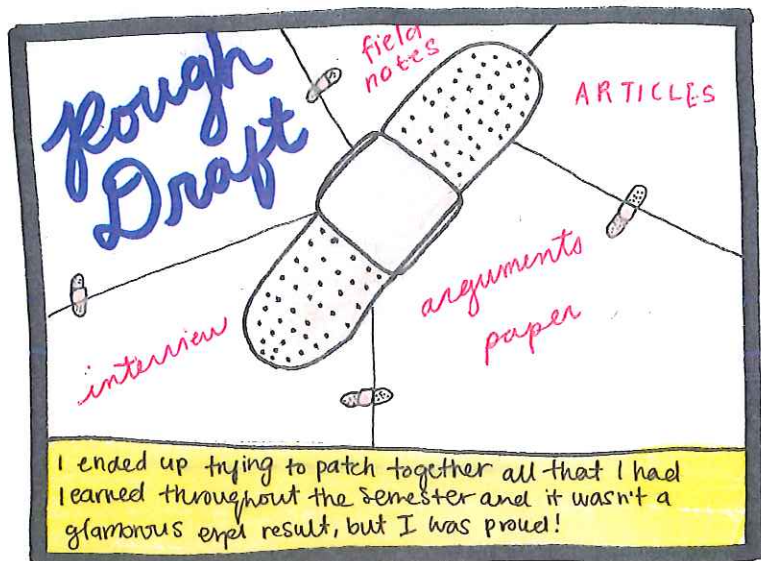 Rough
Draft
field
notes
ARTICLES
interview
arguments
paper
I ended up trying to patch together all that I had
learned throughout the semester and it wasn't a
glamorous end result, but I was proud!